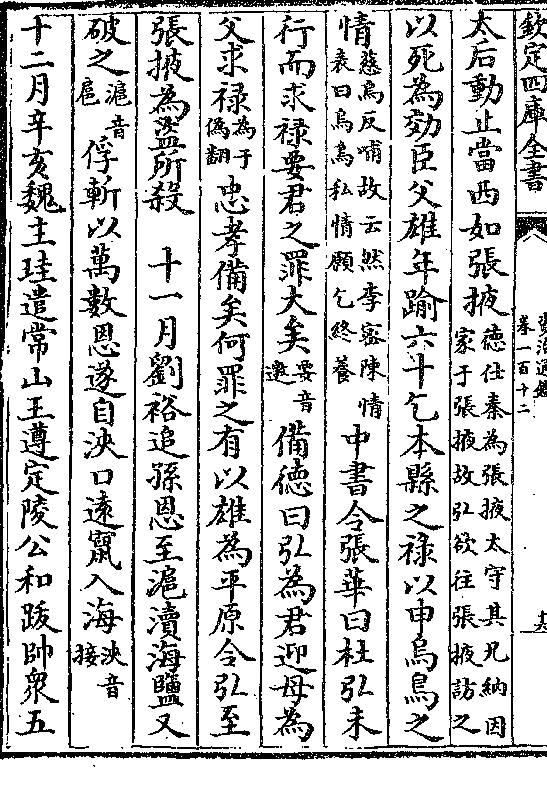 欽定四庫全書
資治通鑑
卷一百十二
十六
太后動止當西如張掖德仕秦為張掖太守其兄納因
家于張掖故弘欲往張掖訪之
以死為効臣父雄年踰六十乞本縣之祿以申烏鳥之
情慈烏反哺故云然李密陳情
表曰烏鳥私情願乞終養
中書令張華曰杜弘未
行而求祿要君之罪大矣要音
邀
備德曰弘為君迎母為
父求祿為于
偽翻
忠孝備矣何罪之有以雄為平原令弘至
張掖為盜所殺 十一月劉裕追孫恩至滬瀆海鹽又
破之滬音
扈
俘斬以萬數恩遂自浹口遠竄入海浹音
接
十二月辛亥魏主珪遣常山王遵定陵公和跋帥衆五